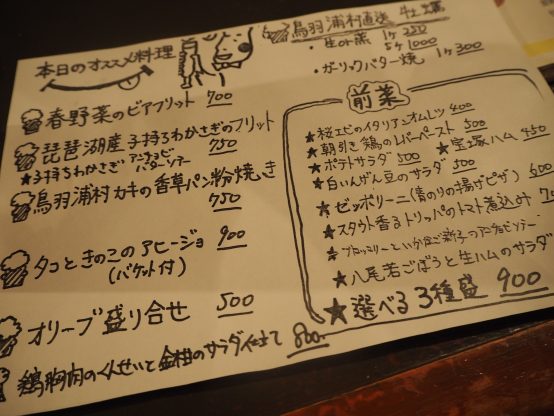 本日のオススメ料理
春野菜のビアフリット 700
琵琶湖産 子持ちわかさぎのフリット 750
★子持ちわかさぎ アンチョビバターソテー
鳥羽浦村 カキの香草パン粉焼き 750
タコときのこのアヒージョ 900
(バケット付)
オリーブ盛り合せ 500
鶏胸肉のくんせいと金柑のサラダ仕立て 800
鳥羽浦村直送 牡蠣
・生or蒸 1ケ 250
5ケ 1000
・ガーリックバター焼 1ケ 300
前菜
★桜エビのイタリアンオムレツ 400
★朝引き鶏のレバーペースト 500
★ポテトサラダ 500 ★宝塚ハム 450
★白いんげん豆のサラダ 500
★ゼッポリーニ(青のりの揚げピザ) 600
★スタウト香るトリッパのトマト煮込み
★ブロッコリーといかなご新子のアンチョビソテー
★八尾若ごぼうと生ハムのサラダ
★選べる3種盛 900